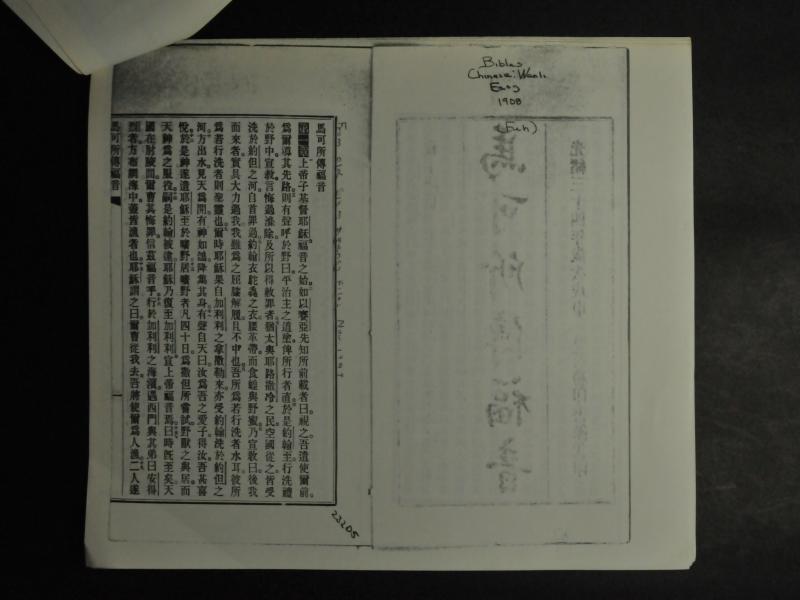 Bibles
Chinese: Wenli
Easy
1908
光緒三十四年歲次戊申
馬可所傳福音
馬可所傳福音
上帝子基督耶穌福音之始。如以賽亞先知所前載者曰。視之。吾遣使爾前。
爲爾導其先路。則有聲呼於野曰。平治主之道塗。俾所行者直。於是約翰至。行洗禮
於野中。宣教。言悔過滌除。及所以得赦罪者。猶太與耶路撒冷之民。空國從之。皆受
洗於約但之河。自首罪過。約翰衣駝毳之衣。腰革帶。而食蝗與野蜜。乃宣教曰。後我
而來者。實具大力過我。我雖爲之屈膝解履。且不中也。吾所爲若行洗者水耳。彼所
爲若行洗者。則聖靈也。爾時耶穌果自加利利之拿撒勒來。亦受約翰洗於約但之
河。方出水。見天爲開。有神如鴿。降集其身。有聲自天曰。汝爲吾之愛子。得汝吾甚喜
悅。於是神遂遣耶穌至於曠野。居曠野者凡四十日。爲撒但所嘗試。野獸之與居。而
天神爲之服役。嗣是約翰被逮。耶穌乃復至加利利。宣上帝福音焉。曰。時既至矣。天
國在尉陵間。爾曹其悔罪。信茲福音乎。行於加利利之海濱。遇西門與其弟曰安得
烈者。方布網海中。蓋皆漁者也。耶穌謂之曰。爾曹從我去。吾將使爾爲人漁。二人遂
馬可所傳福音
23205